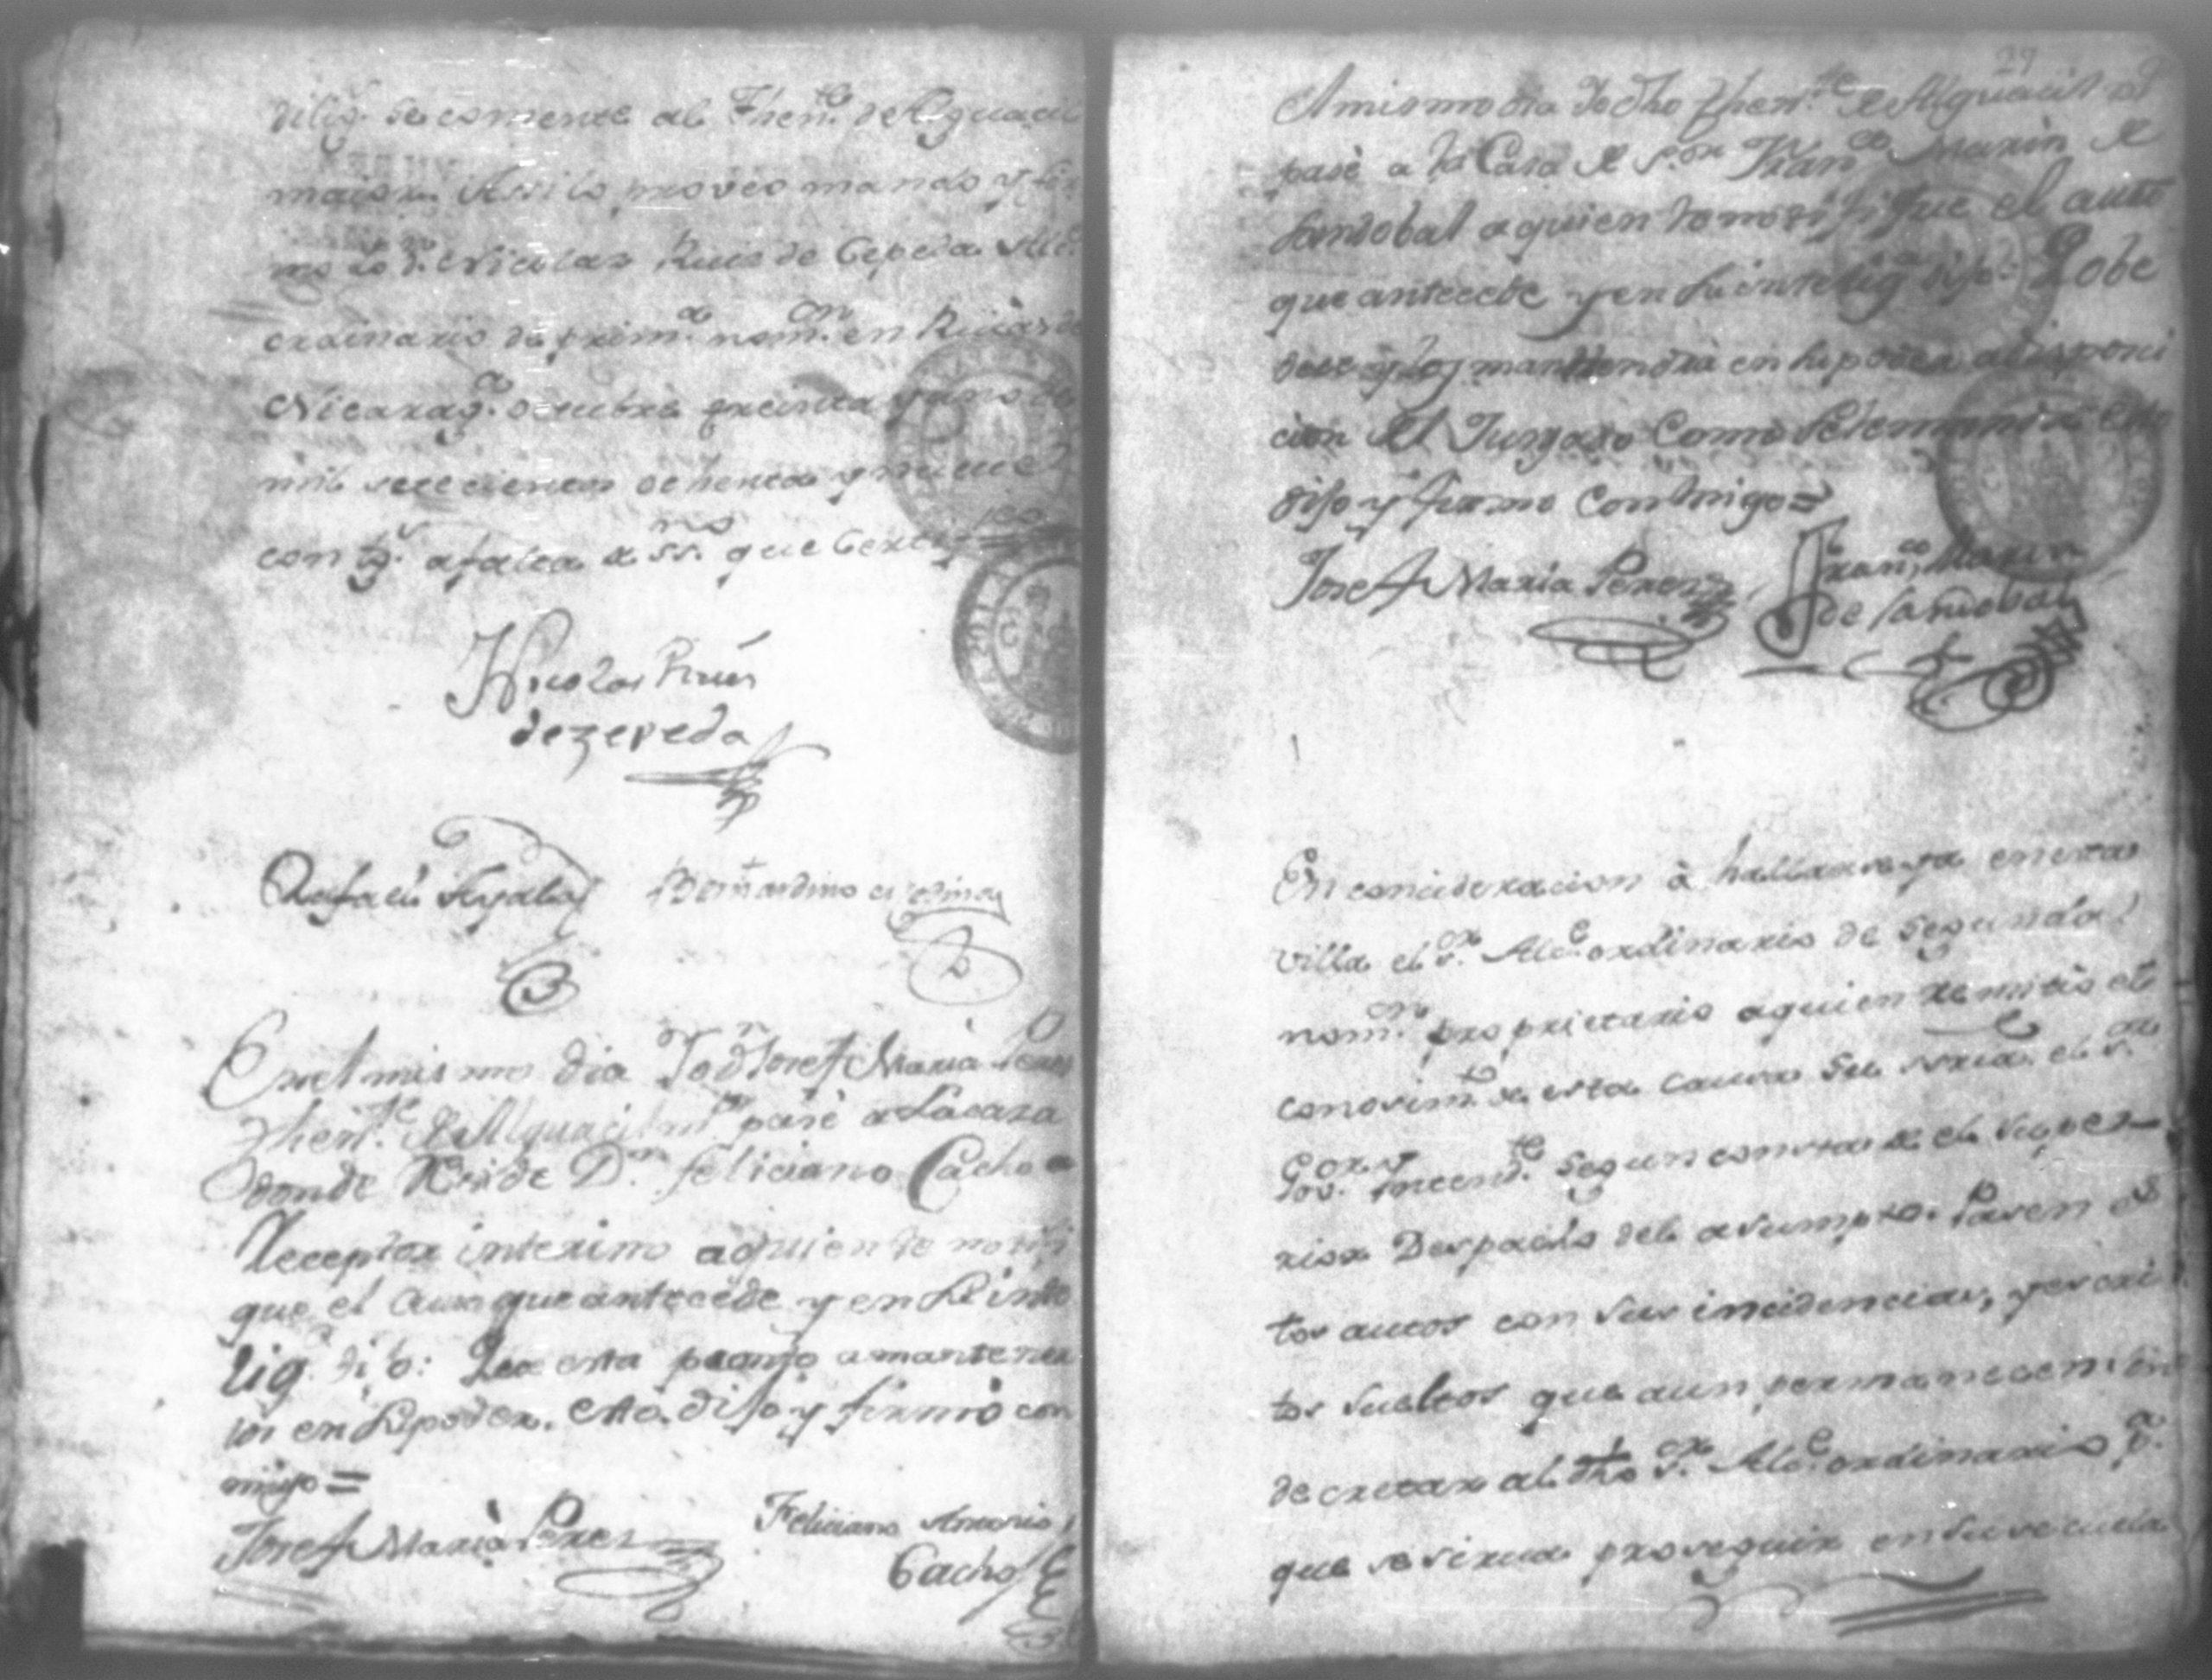 dilig.ª se comente al Then.te de Alguacil
maior. Assi lo proveo mando y fir
mo yo d.n Nicolas Ruis de Cepeda Alc.e
ordinario de prim.a nom.on en
Nicarag.a octubre treinta y uno de
mil setecientos ochenta y nueve
con tg.s a falta de ss.no que Certifico
Nicolas Ruis
de zepeda
Rafael Ayala Bernardino
En el mismo dia Yo dn Josef Maria Perez
Then.te de Alguacil m.or pasè a la casa
donde Reside D.n Feliciano Cacho
Receptor interino a quien le notifi
que el Auto que antecede y en su inte
lig.a dijo: Que esta promto a mantener
los en su poder. Esto dijo y firmò con
migo =
Josef Maria Perez Feliciano Antonio
Cacho
29
A mismo dia Yo dho Then.te de Alguacil m.r
pasè a la Casa de S.or Fran.co Marin de
Sandobal a quien le notifique el auto
que antecede y en su intelig.a dijo: Q obe
dece y los mantendrà en su poder a disposi
cion del Jusgado Como se le manda esto
dijo y firmo Conmigo =
Josef Maria Perez Fran.co Marin
de Sandobal
En concideracion à hallarse ya en esta
villa el S.or Alc.e ordinario de segunda
nom.on proprietario a quien remitiò el
conosim.to de esta causa Su sria. el S.or
Gov.or Intend.te segun consta de el Supe
rior Despacho del asumpto. Pasen es
tos autos con sus incidencias, y escri
tos sueltos que aun permanecen sin
decretar al dho S.or Alc.e ordinario p.a
que se sirva proseguir en su secuela